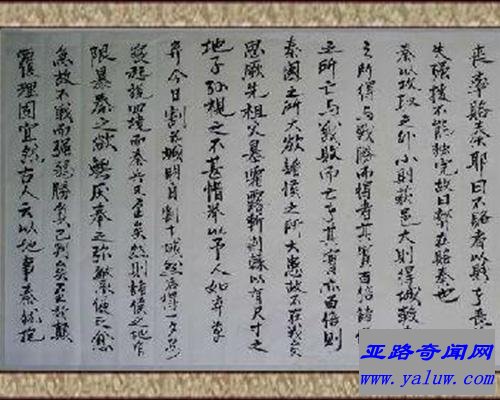 喪率賂秦耶曰不賂者以賂者喪
失強援不能獨完故曰弊在賂秦也
秦以攻取之外小則获邑大則得城較
之所得与戰勝而得者其實百倍諸
之所亡与戰敗而亡者其實亦百倍則
秦國之所大欲諸侯之所大患故不在戰矣
思厥先祖父暴霜露斬荆棘以有尺寸之
地子孫視之不甚惜举以予人如弃草
芥今日割五城明日割十城然后得一夕安
寢起視四境而秦兵又至矣然則諸侯之地有
限暴秦之欲無厌奉之弥繁侵之愈
急故不戰而強弱勝負已判矣至於顛
覆理固宜然古人云以地事秦猶抱
亚路奇闻网
www.yaluw.com